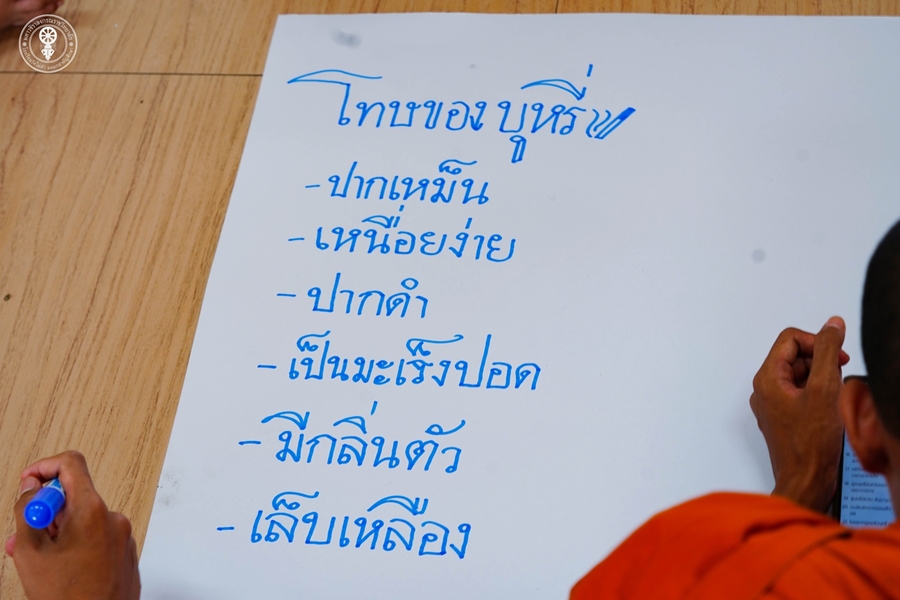 โทษของบุหรี่
- ปากเหม็น
- เหนื่อยง่าย
- ปากดำ
- เป็นมะเร็งปอด
- มีกลิ่นตัว
- เล็บเหลือง